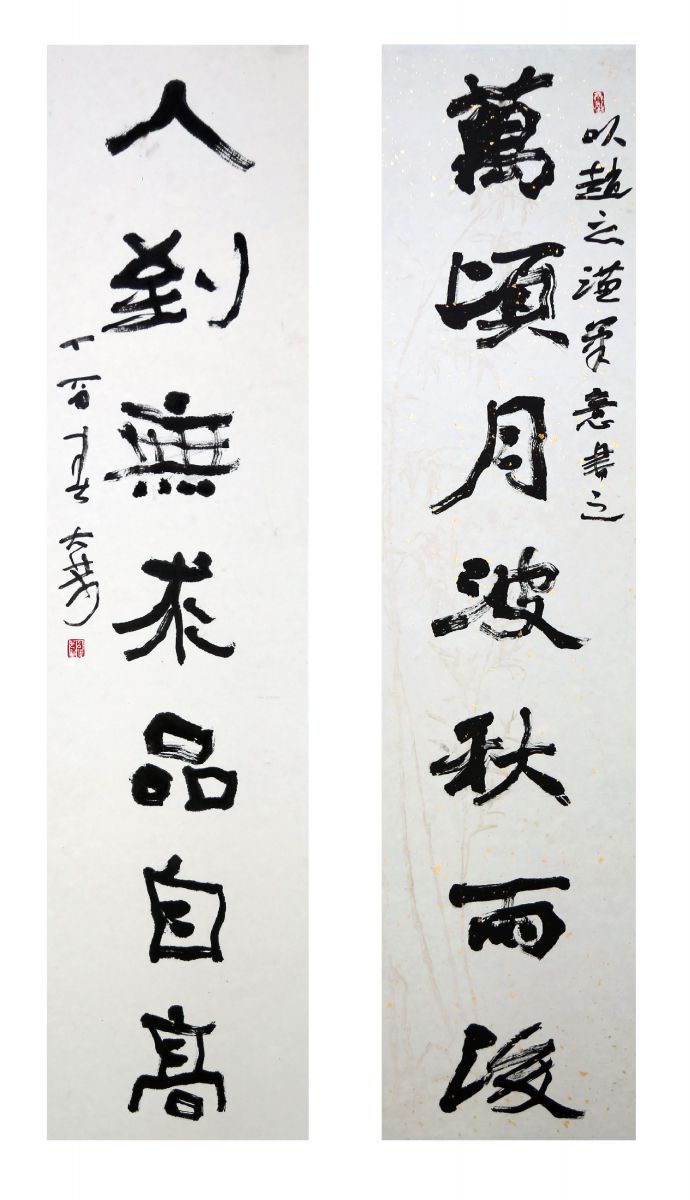 以趙之謙筆意書之
萬頃月波秋雨後
人到無求品自高
丁酉